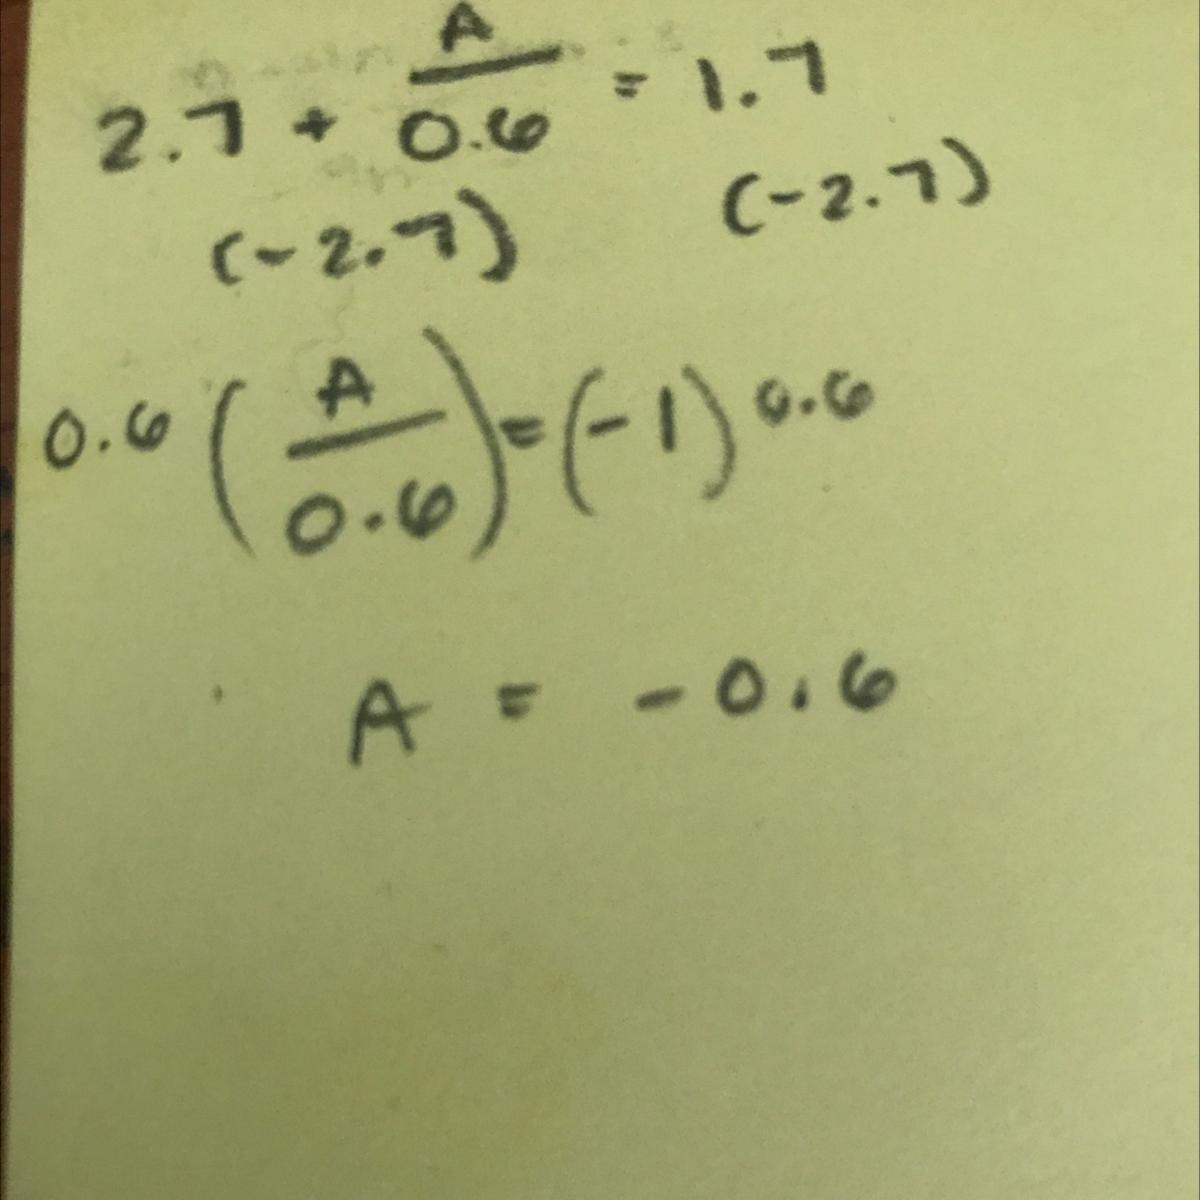 2.7 + A/0.6 = 1.7
(-2.7) (-2.7)
0.6 (A/0.6) = (-1) 0.6
A = -0.6